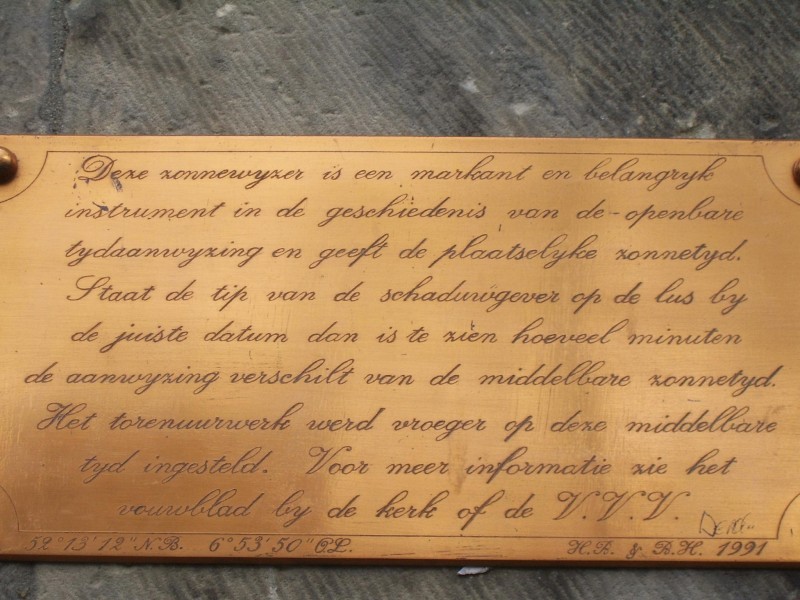 Deze zonnewyzer is een markant en belangryk
instrument in de geschiedenis van de-openbare
tydaanwyzing en geeft de plaatselyke zonnetyd.
Staat de tip van de schaduwgever op de lus by
de juiste datum dan is te zien hoeveel minuten
de aanwyzing verschilt van de middelbare zonnetyd.
Het torenuurwerk werd vroeger op deze middelbare
tyd ingesteld. Voor meer informatie zie het
vouwblad by de kerk of de V.V.V.
52°13'12"N.B. 6°53'50"O.L. H.B. & B.H. 1991